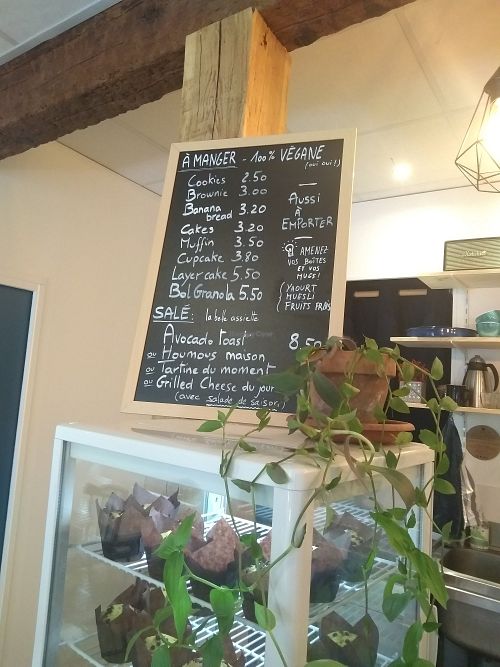 À MANGER - 100% VÉGANE
(oui oui!)
Cookies 2.50
Brownie 3.00
Banana bread 3.20
Cakes 3.20
Muffin 3.50
Cupcake 3.80
Layer cake 5.50
Bol Granola 5.50
AUSSI
À
EMPORTER
AMENEZ
VOS BOÎTES
ET VOS
MUGS!
YAOURT
MUESLI
FRUITS FRAIS
SALÉ: la belle assiette
Avocado toast 8.50
ou Houmous maison
ou Tartine du moment
ou Grilled Cheese du jour
(avec salade de saison)